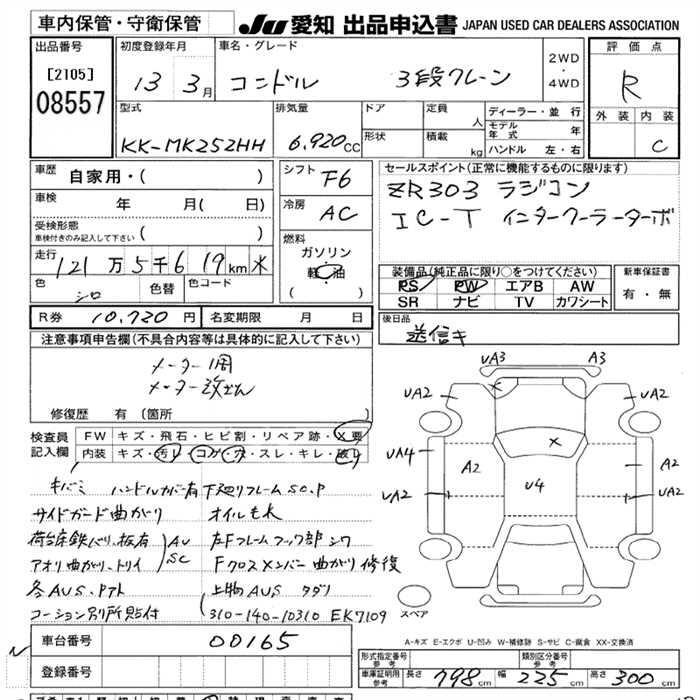 車内保管・守衛保管
JU 愛知 出品申込書 JAPAN USED CAR DEALERS ASSOCIATION
出品番号 [2105] 08557
初度登録年月 13 3月
車名・グレード コンドル 3段クレーン
2WD・4WD
評価点 R
外装 内装 C
型式 KK-MK252HH
排気量 6.920cc
ドア 形状
定員 人
積載 kg
ディーラー・並行
モデル年式 年
ハンドル 左・右
車歴 自家用・( )
車検 年 月( 日)
受検形態 車検付きのみ記入して下さい ( )
走行 121万5千6 19km
色 シロ 色替 色コード
シフト F6
冷房 AC
燃料 ガソリン 軽油 ( )
セールスポイント(正常に機能するものに限ります)
ZR303 ラジコン
IC-T インタークーラーターボ
装備品(純正品に限り○をつけてください)
PS PW エアB AW
SR ナビ TV カワシート
新車保証書 有・無
R券 10.720円
名変期限 月 日
後日品 送信キ
注意事項申告欄(不具合内容等は具体的に記入して下さい)
メーター1周
メーター改ざん
修復歴 有 (箇所 )
検査員記入欄
FW キズ・飛石・ヒビ割・リペア跡・X要
内装 キズ・汚れ・コゲ・穴・スレ・キレ・破れ
キバミ ハンドルカバー有 下廻りフレームSC.P
サイドガード曲がり オイルもれ
荷台床鉄バリ、板有 AU SC 左Fフレームフック部シワ
アオリ曲がり、トリイ Fクロスメンバー曲がり修復
各AUS.Pアト 上物AUS サダリ
コーション別所貼付 310-140-10310 EK7109
車台番号 00165
登録番号
UA3 A3
UA2 UA2
UA4 A2 A2
UA2 U4 UA2
スペア
A-キズ E-エクボ U-凹み W-補修跡 S-サビ C-腐食 XX-交換済
形式指定番号 参考 類別区分番号 参考
車庫証明用 参考 長さ 798cm 幅 225cm 高さ 300cm